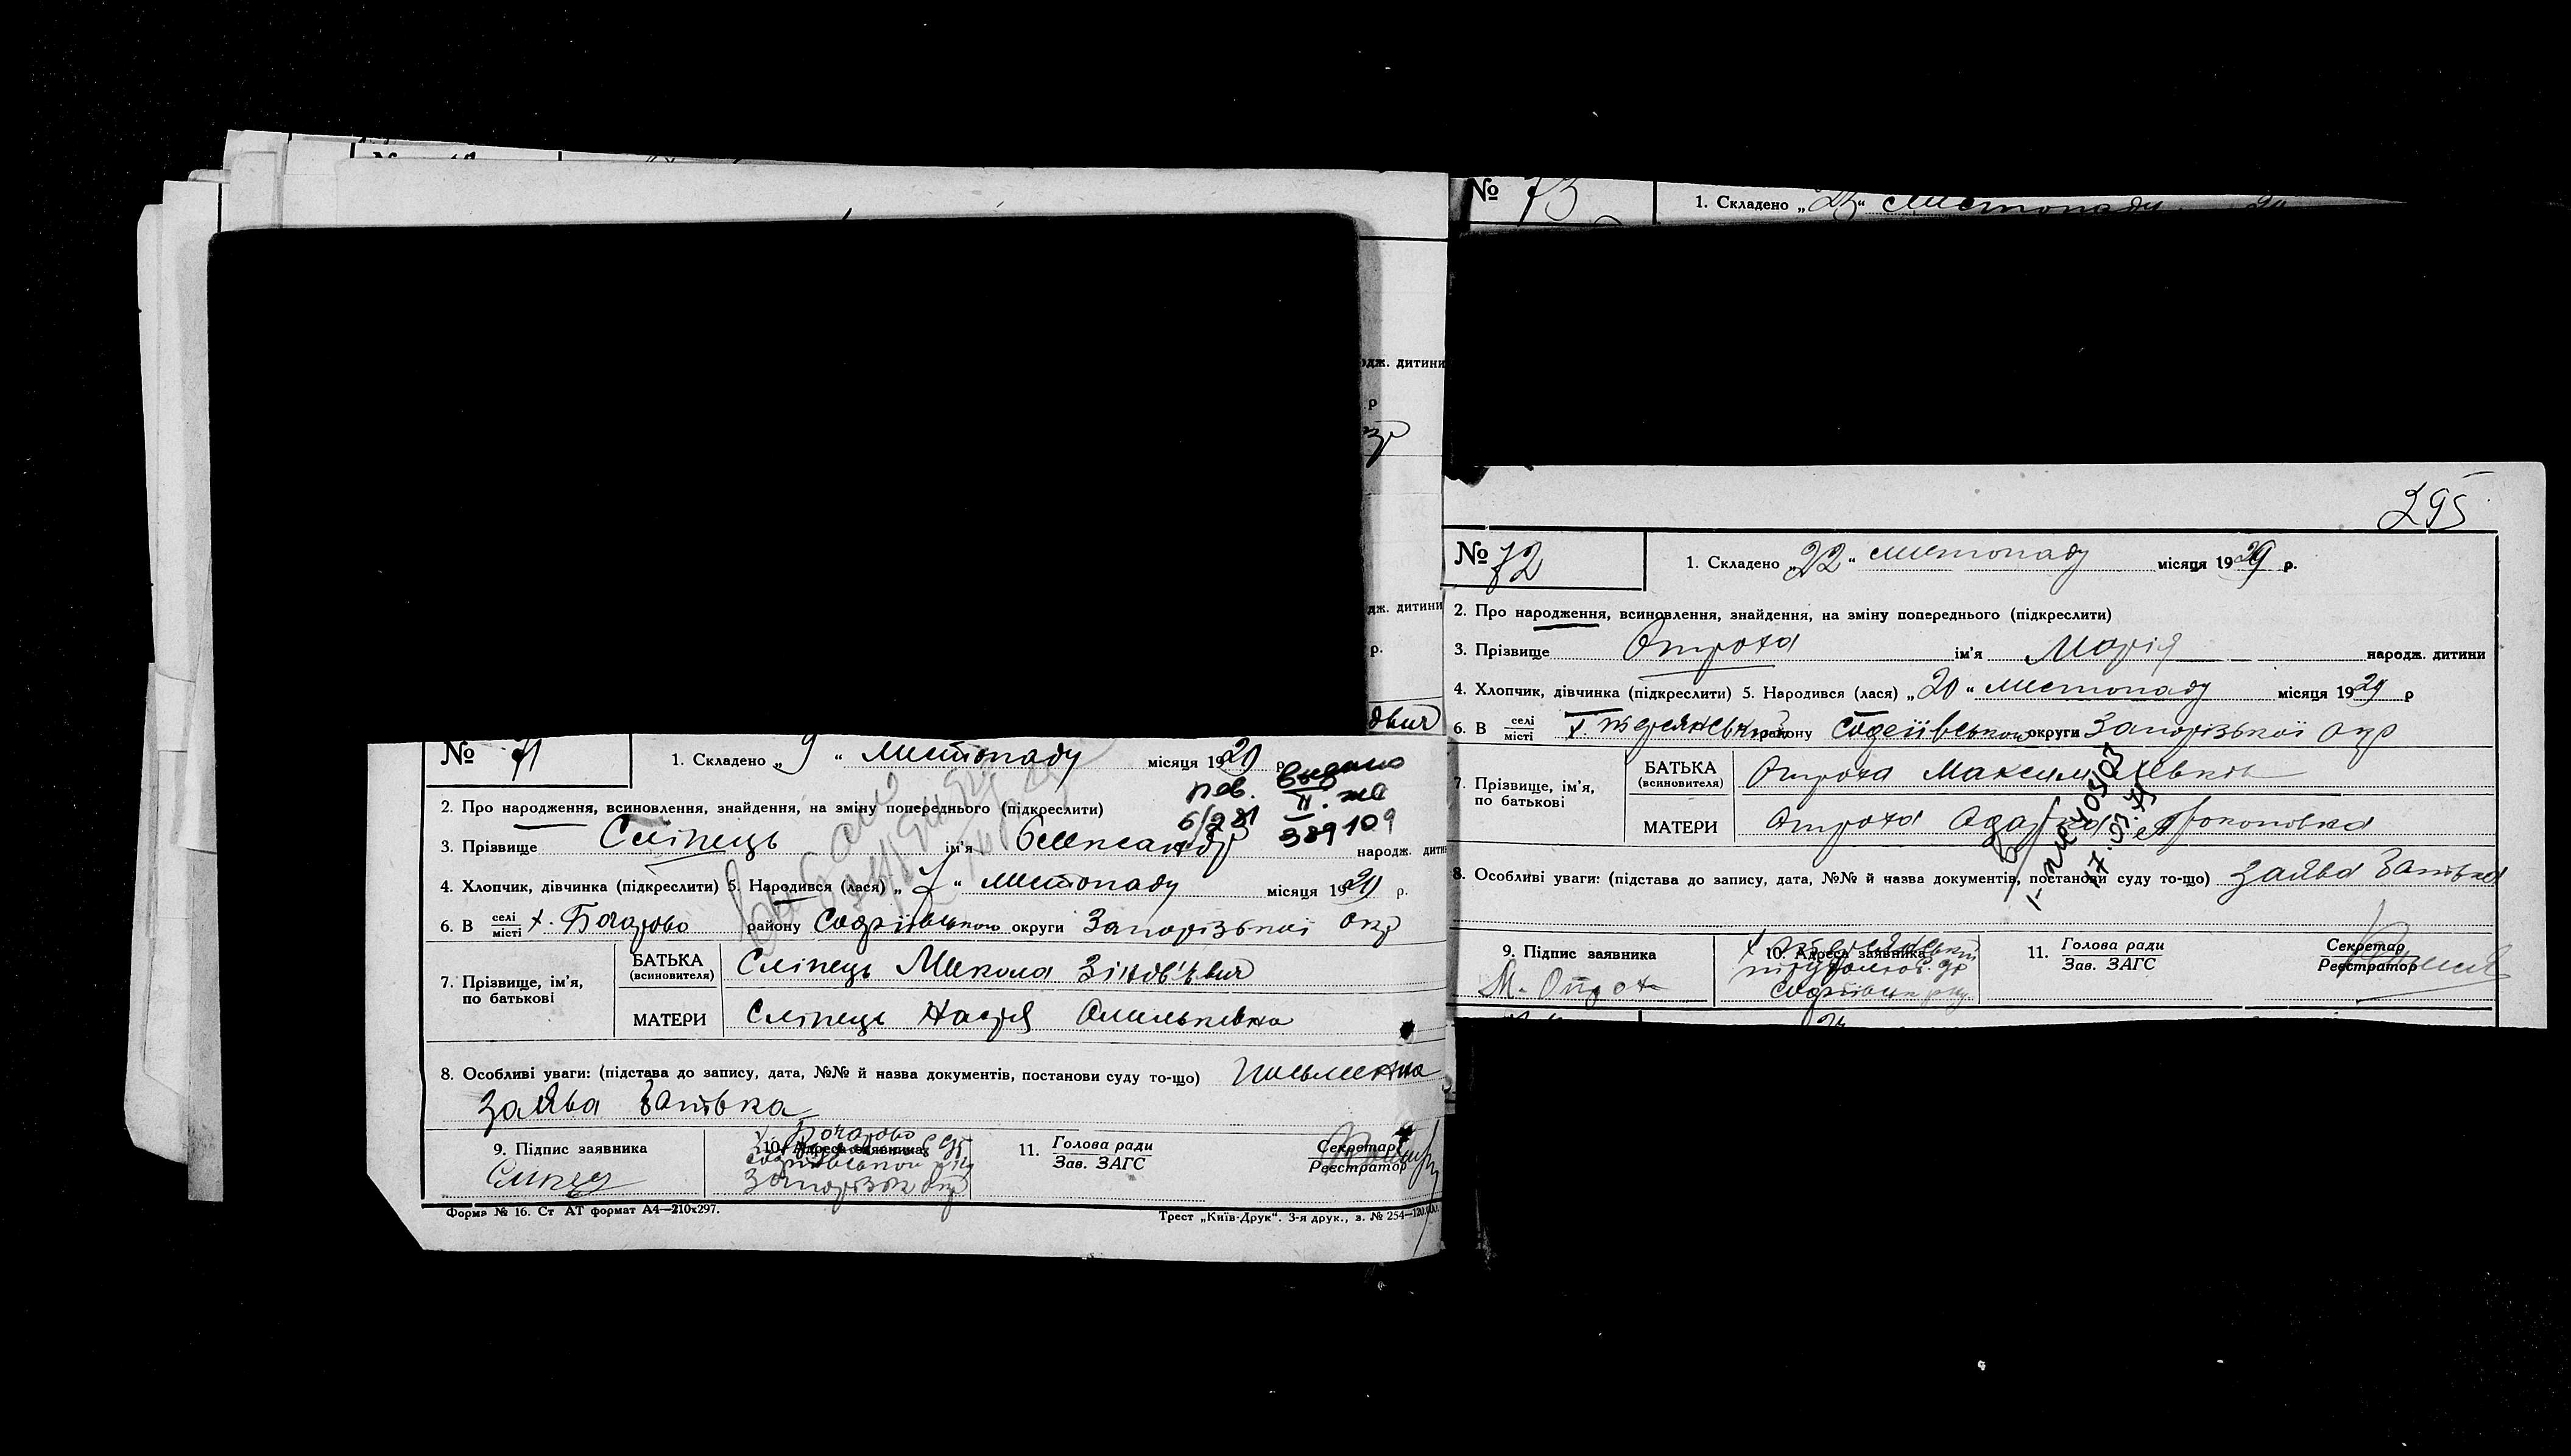 № 71
1. Складено „9“ листопаду місяця 1929 р.
пов. выдано
II. жс
6/ 81
389109
2. Про народження, всиновлення, знайдення, на зміну попереднього (підкреслити)
3. Прізвище Сліпець ім'я Олександр народж. дитин
4. Хлопчик, дівчинка (підкреслити) 5. Народився (лася) „7“ листопаду місяця 1929 р.
6. В селі місті х. Бочарово району Софіївського округи Запорізької окр
7. Прізвище, ім'я, по батькові
БАТЬКА (всиновителя) Сліпець Микола Зіновʼєвич
МАТЕРИ Сліпець Настя Омельківна
8. Особливі уваги: (підстава до запису, дата, №№ й назва документів, постанови суду то-що) письменна
заява батька
9. Підпис заявника
10. Адреса заявника
х Бочарово
Софіївського
Запорізьк окр
11. Голова ради
Зав. ЗАГС
Секретар
Реєстратор
Форма № 16. Ст АТ формат А4—210х297.
Трест „Київ-Друк“. 3-я друк., з. № 254—120.000.
одж. дитини
р
дж. дитини
р.
№ 73
1. Складено „23“ листопаду
295
№ 72
1. Складено „22“ листопаду місяця 1929 р.
2. Про народження, всиновлення, знайдення, на зміну попереднього (підкреслити)
3. Прізвище Отроха ім'я Марія народж. дитини
4. Хлопчик, дівчинка (підкреслити) 5. Народився (лася) „20“ листопаду місяця 1929 р
6. В селі місті х. району Софіївського округи Запорізької окр
7. Прізвище, ім'я, по батькові
БАТЬКА (всиновителя) Отроха Максим Левків
МАТЕРИ Отроха Одарка Прокоповна
8. Особливі уваги: (підстава до запису, дата, №№ й назва документів, постанови суду то-що) заява батька
9. Підпис заявника
М. Отрох
10. Адреса заявника
Софіївськ
11. Голова ради
Зав. ЗАГС
Секретар
Реєстратор